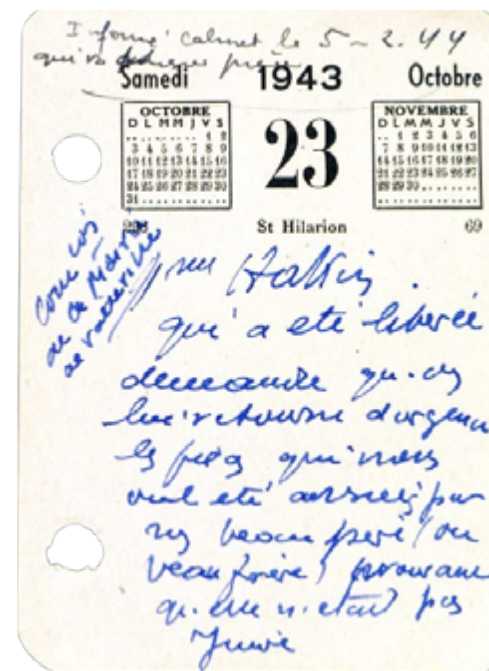 Informé cabinet le 5-2.44
qui va
Samedi 1943 Octobre
OCTOBRE
D L M M J V S
.. .. .. .. .. 1 2
3 4 5 6 7 8 9
10 11 12 13 14 15 16
17 18 19 20 21 22 23
24 25 26 27 28 29 30
31 .. .. .. .. .. ..
23
NOVEMBRE
D L M M J V S
.. 1 2 3 4 5 6
7 8 9 10 11 12 13
14 15 16 17 18 19 20
21 22 23 24 25 26 27
28 29 30 .. .. .. ..
296 St Hilarion 69
de Mairie
de
Mme Hatkin
qui a été libérée
demande qu'on
lui retourne d'urgence
les pièces qui nous
ont été par
beau père (ou
beau frère) prouvant
qu'elle n'était pas
Juive